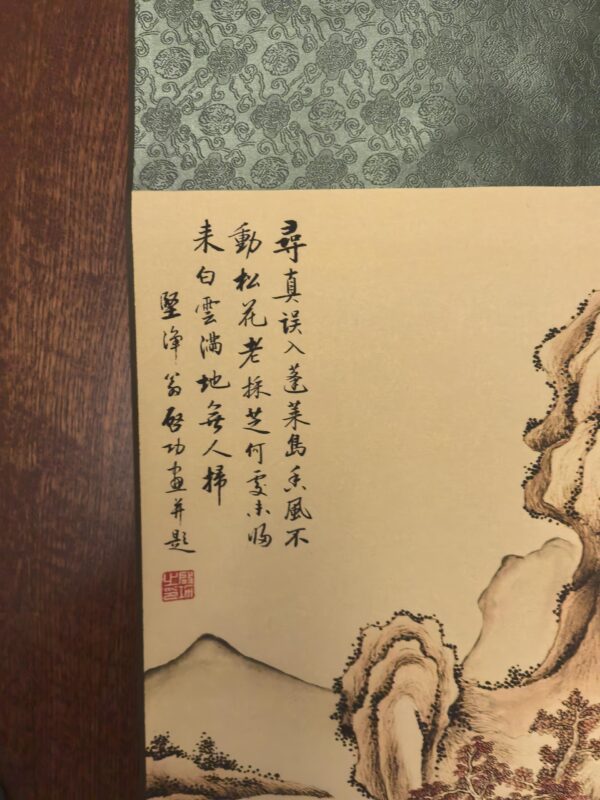 尋真误入蓬莱島香風不
動松花老採芝何處未歸
来白雲滿地無人掃
堅净翁啓功畫并題
啓功之印